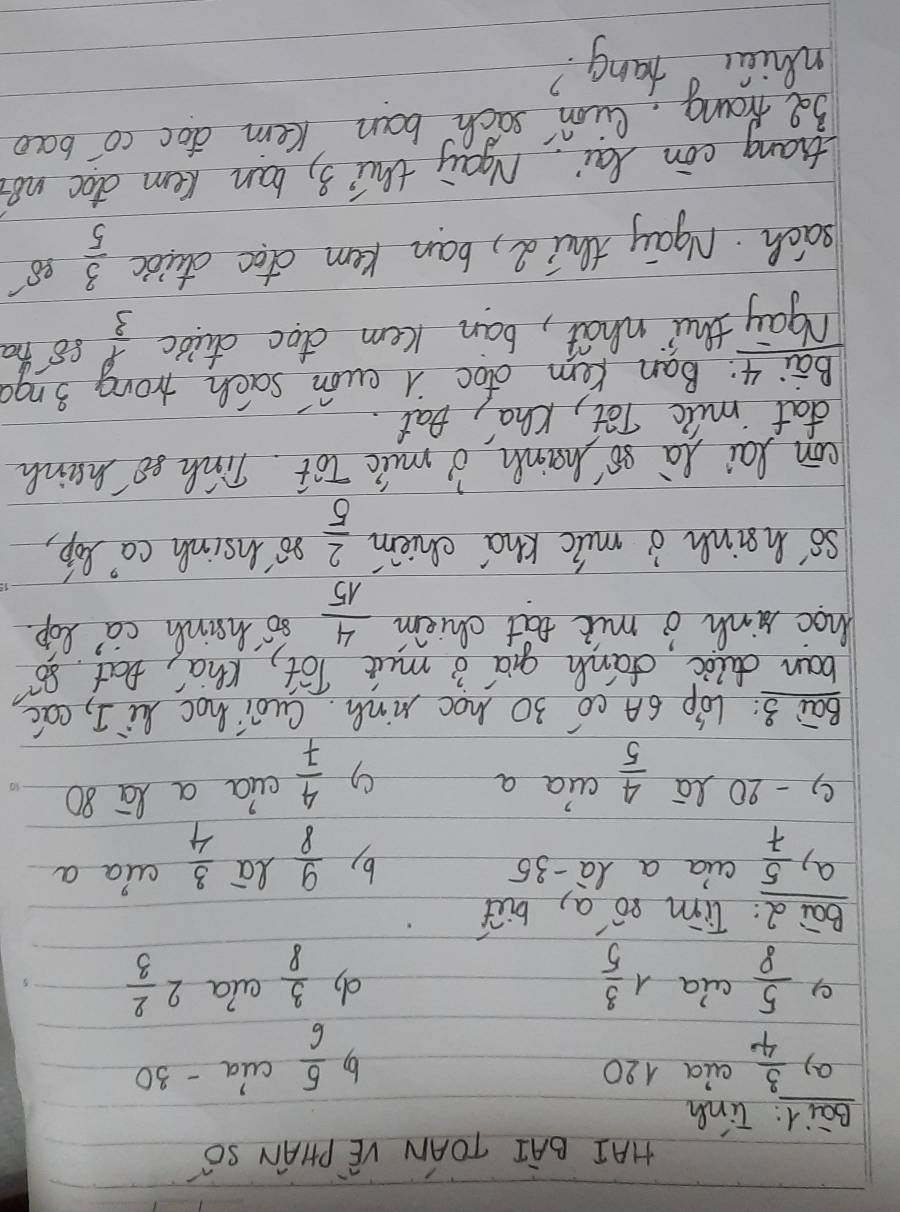 HAI BÀI TOÁN VỀ PHÂN SỐ
Bài 1: Tính
a, 3/4 của 120 b, 5/6 của - 30
c, 5/8 của 1 3/5 d, 3/8 của 2 2/3
Bài 2: Tìm số a, biết
a, 5/7 của a là -35 b, 9/8 là 3/4 của a
c, - 20 là 4/5 của a c, 4/7 của a là 80
Bài 3: Lớp 6A có 30 học sinh. Cuối học kì I, các
bạn được đánh giá ở mức Tốt, Khá, Đạt. Số
học sinh ở mức Đạt chiếm 4/15 số hsinh cả lớp.
Số hsinh ở mức Khá chiếm 2/5 số hsinh cả lớp,
còn lại là số hsinh ở mức Tốt. Tính số hsinh
đạt mức Tốt, Khá, Đạt.
Bài 4: Bạn Kem đọc 1 cuốn sách trong 3 ngà
Ngày thứ nhất, bạn Kem đọc được 1/3 số tra
sách. Ngày thứ 2, bạn Kem đọc được 3/5 số
trang còn lại. Ngày thứ 3, bạn Kem đọc nốt
32 trang. Cuốn sách bạn Kem đọc có bao
nhiêu trang?